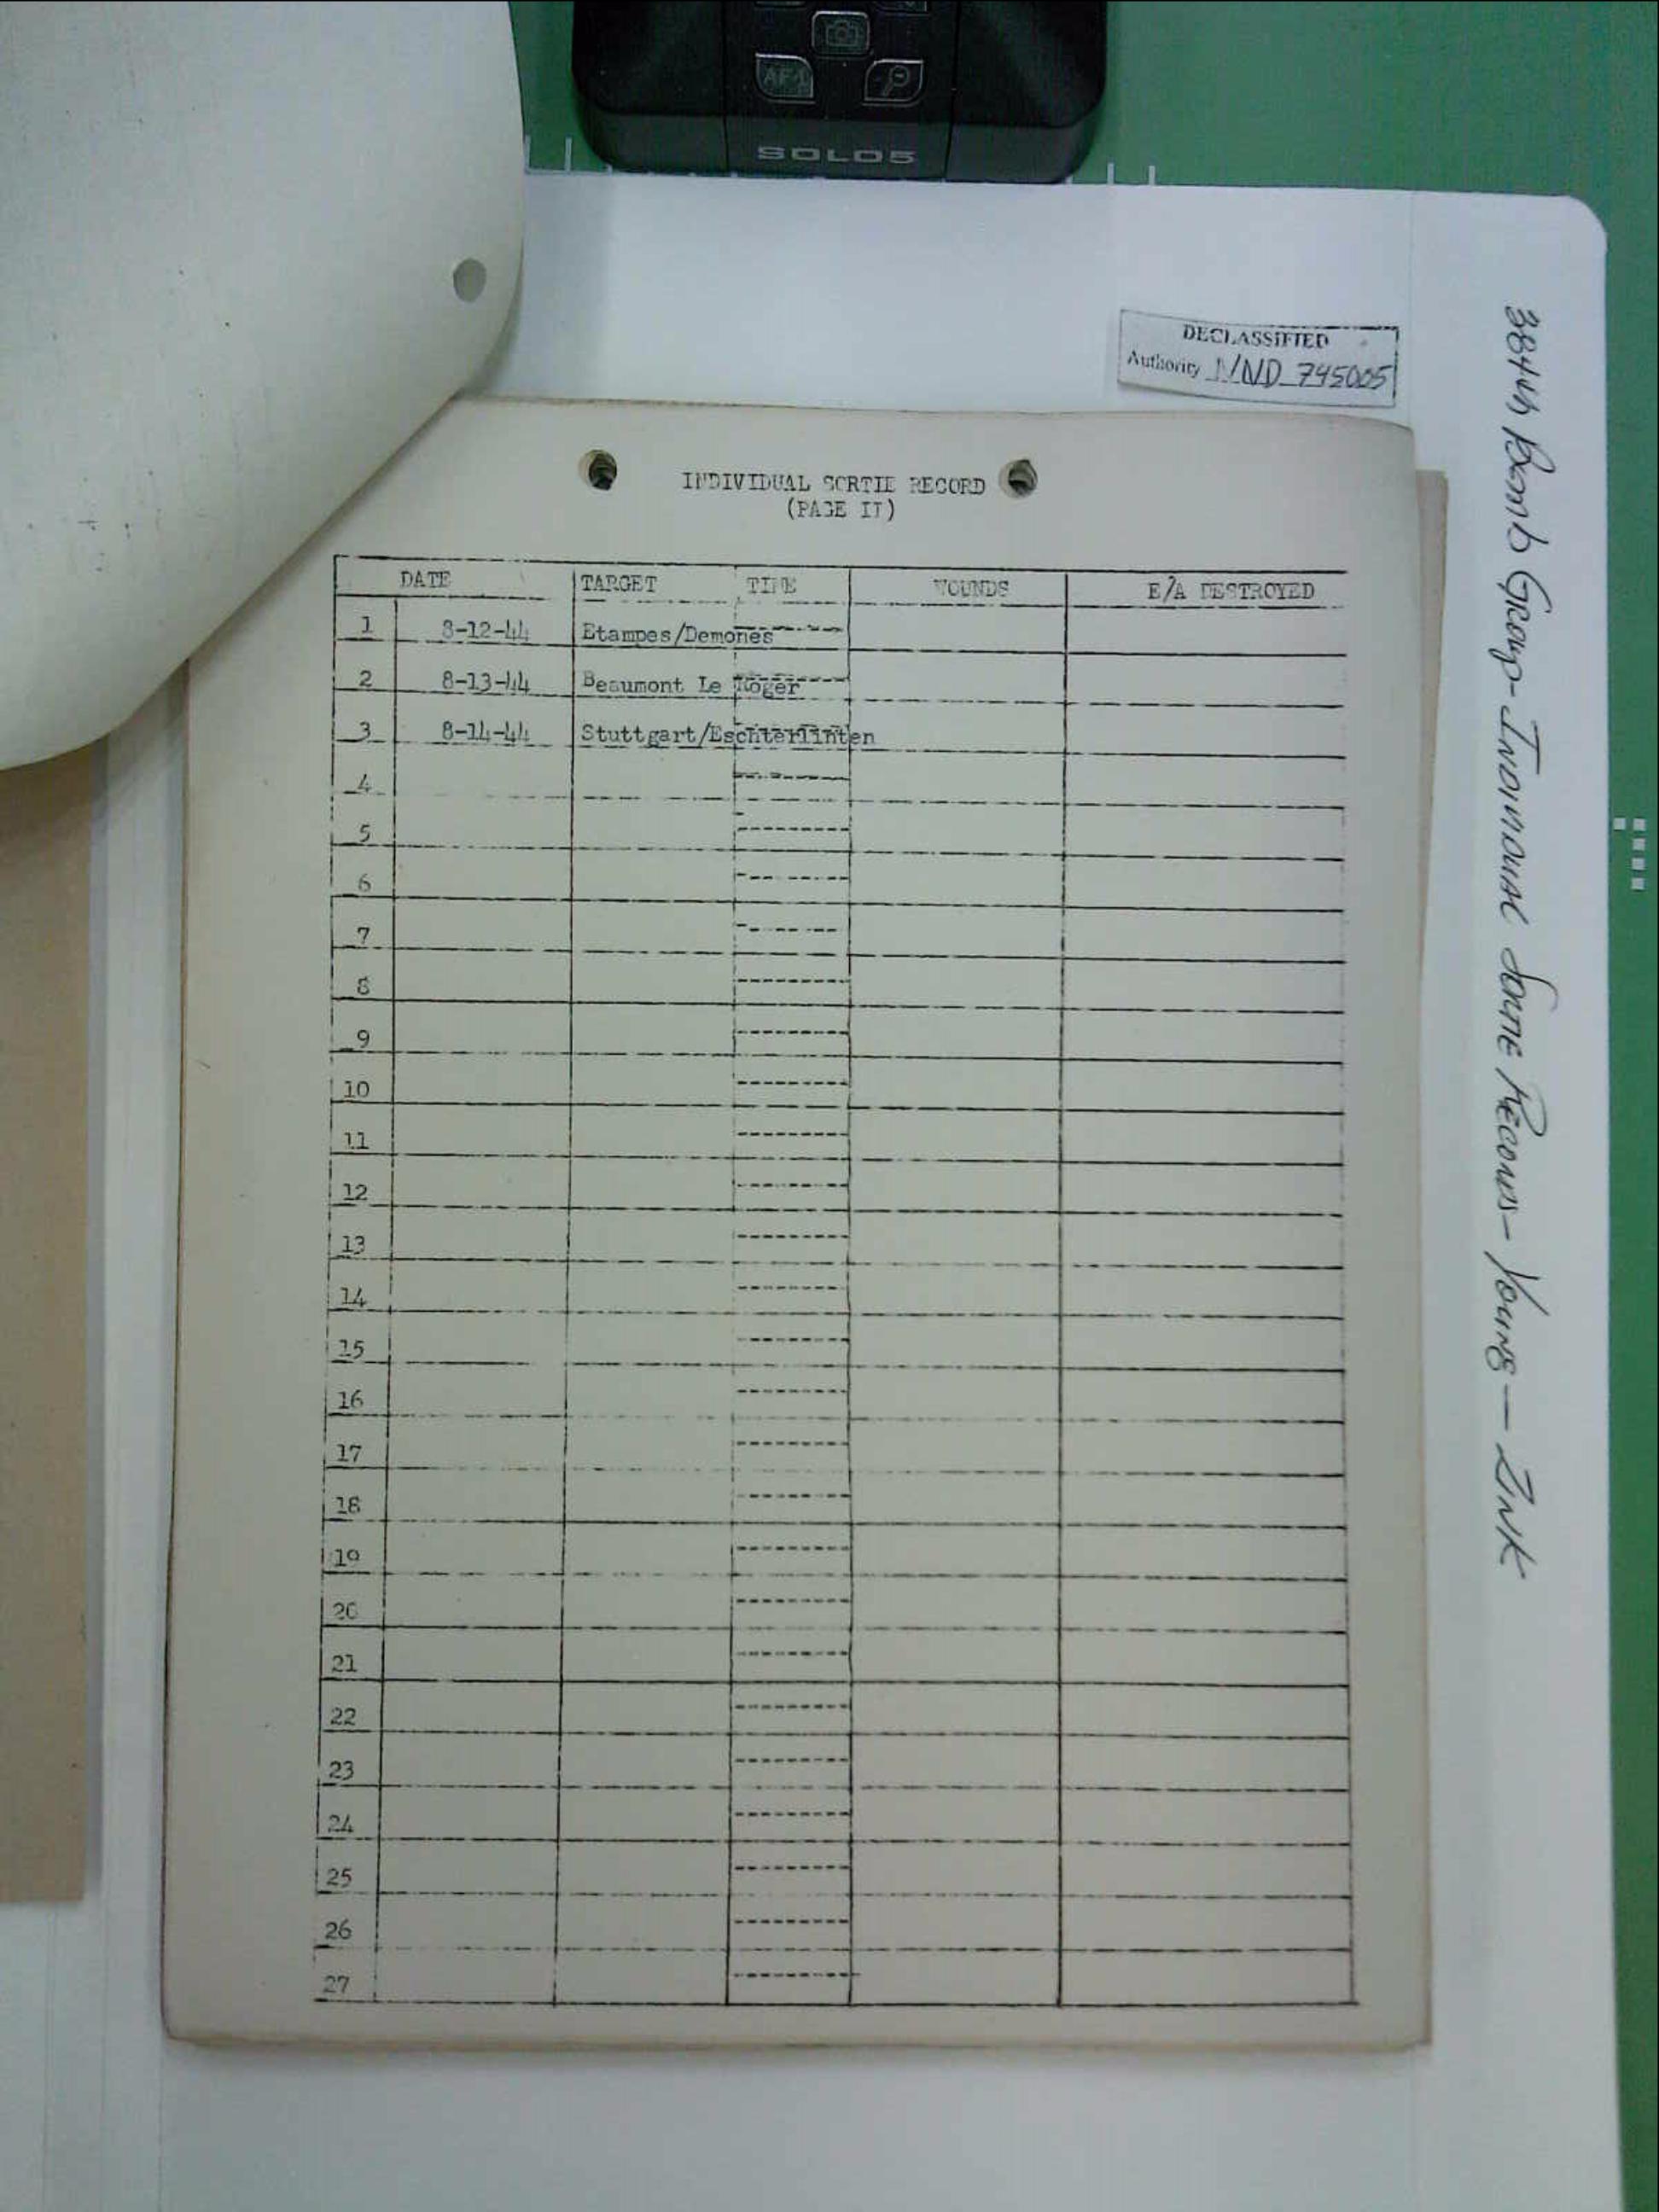 AF-L
SOLO5
DECLASSIFIED
Authority NND 745005
384th Bomb Group - Individual Sortie Records - Young — Zink
INDIVIDUAL SORTIE RECORD
(PAGE II)
DATE TARGET TIME WOUNDS E/A DESTROYED
1 8-12-44 Etampes/Demones
2 8-13-44 Beaumont Le Roger
3 8-14-44 Stuttgart/Eschterlinten
4
5
6
7
8
9
10
11
12
13
14
15
16
17
18
19
20
21
22
23
24
25
26
27